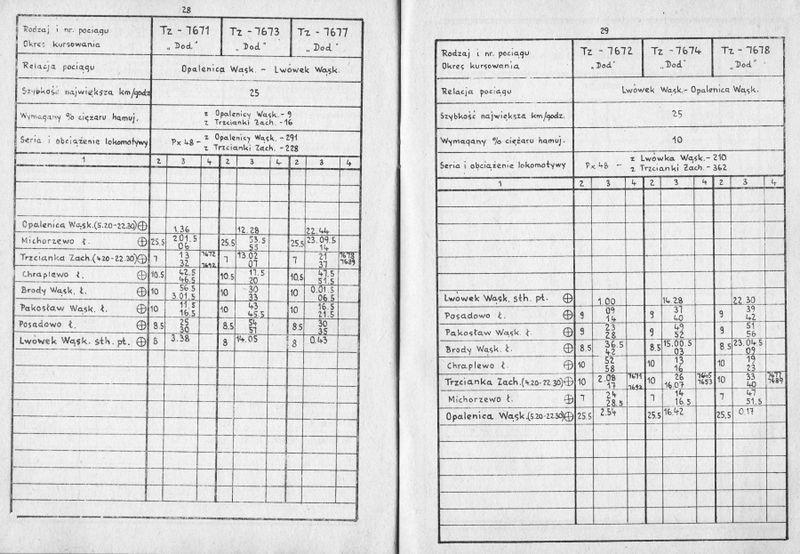 28
Rodzaj i nr. pociągu Tz - 7671 Tz - 7673 Tz - 7677
Okres kursowania „Dod" „Dod" „Dod"
Relacja pociągu Opalenica Wąsk. - Lwówek Wąsk.
Szybkość największa km/godz 25
Wymagany % ciężaru hamuj. z Opalenicy Wąsk. - 9
z Trzcianki Zach. - 16
Seria i obciążenie lokomotywy Px 48 - z Opalenicy Wąsk. - 291
z Trzcianki Zach. - 228
1 2 3 4 2 3 4 2 3 4
Opalenica Wąsk. (5.20-22.30) 1.36 12.28 22.44
Michorzewo Ł. 25.5 2.01.5 25.5 53.5 25.5 23.09.5
06 55 14
Trzcianka Zach. (4.20-22.30) 7 13 7672 7 13.02 7 21 7678
32 7692 07 37 7689
Chraplewo Ł. 10.5 42.5 10.5 17.5 10.5 47.5
46.5 20 51.5
Brody Wąsk. Ł. 10 56.5 10 30 10 0.01.5
3.01.5 33 06.5
Pakosław Wąsk. Ł. 10 11.5 10 43 10 16.5
16.5 45.5 21.5
Posadowo Ł. 8.5 25 8.5 54 8.5 30
30 57 35
Lwówek Wąsk. sth. pt. 8 3.38 8 14.05 8 0.43
29
Rodzaj i nr. pociągu Tz - 7672 Tz - 7674 Tz - 7678
Okres kursowania „Dod" „Dod" „Dod"
Relacja pociągu Lwówek Wąsk. - Opalenica Wąsk.
Szybkość największa km/godz. 25
Wymagany % ciężaru hamuj. 10
Seria i obciążenie lokomotywy Px 48 - z Lwówka Wąsk. - 210
z Trzcianki Zach. - 362
1 2 3 4 2 3 4 2 3 4
Lwówek Wąsk. sth. pt. 1.00 14.28 22.30
Posadowo Ł. 9 09 9 37 9 39
14 40 42
Pakosław Wąsk. Ł. 9 23 9 49 9 51
28 52 56
Brody Wąsk. Ł. 8.5 36.5 8.5 15.00.5 8.5 23.04.5
42 03 09
Chraplewo Ł. 10 52 10 13 10 19
58 16 23
Trzcianka Zach. (4.20-22.30) 10 2.08 7671 10 26 10 33
17 7692 16.07 7653 40 7689
Michorzewo Ł. 7 24 7 14 7 47
28.5 16.5 51.5
Opalenica Wąsk. (5.20-22.30) 25.5 2.54 25.5 16.42 25.5 0.17